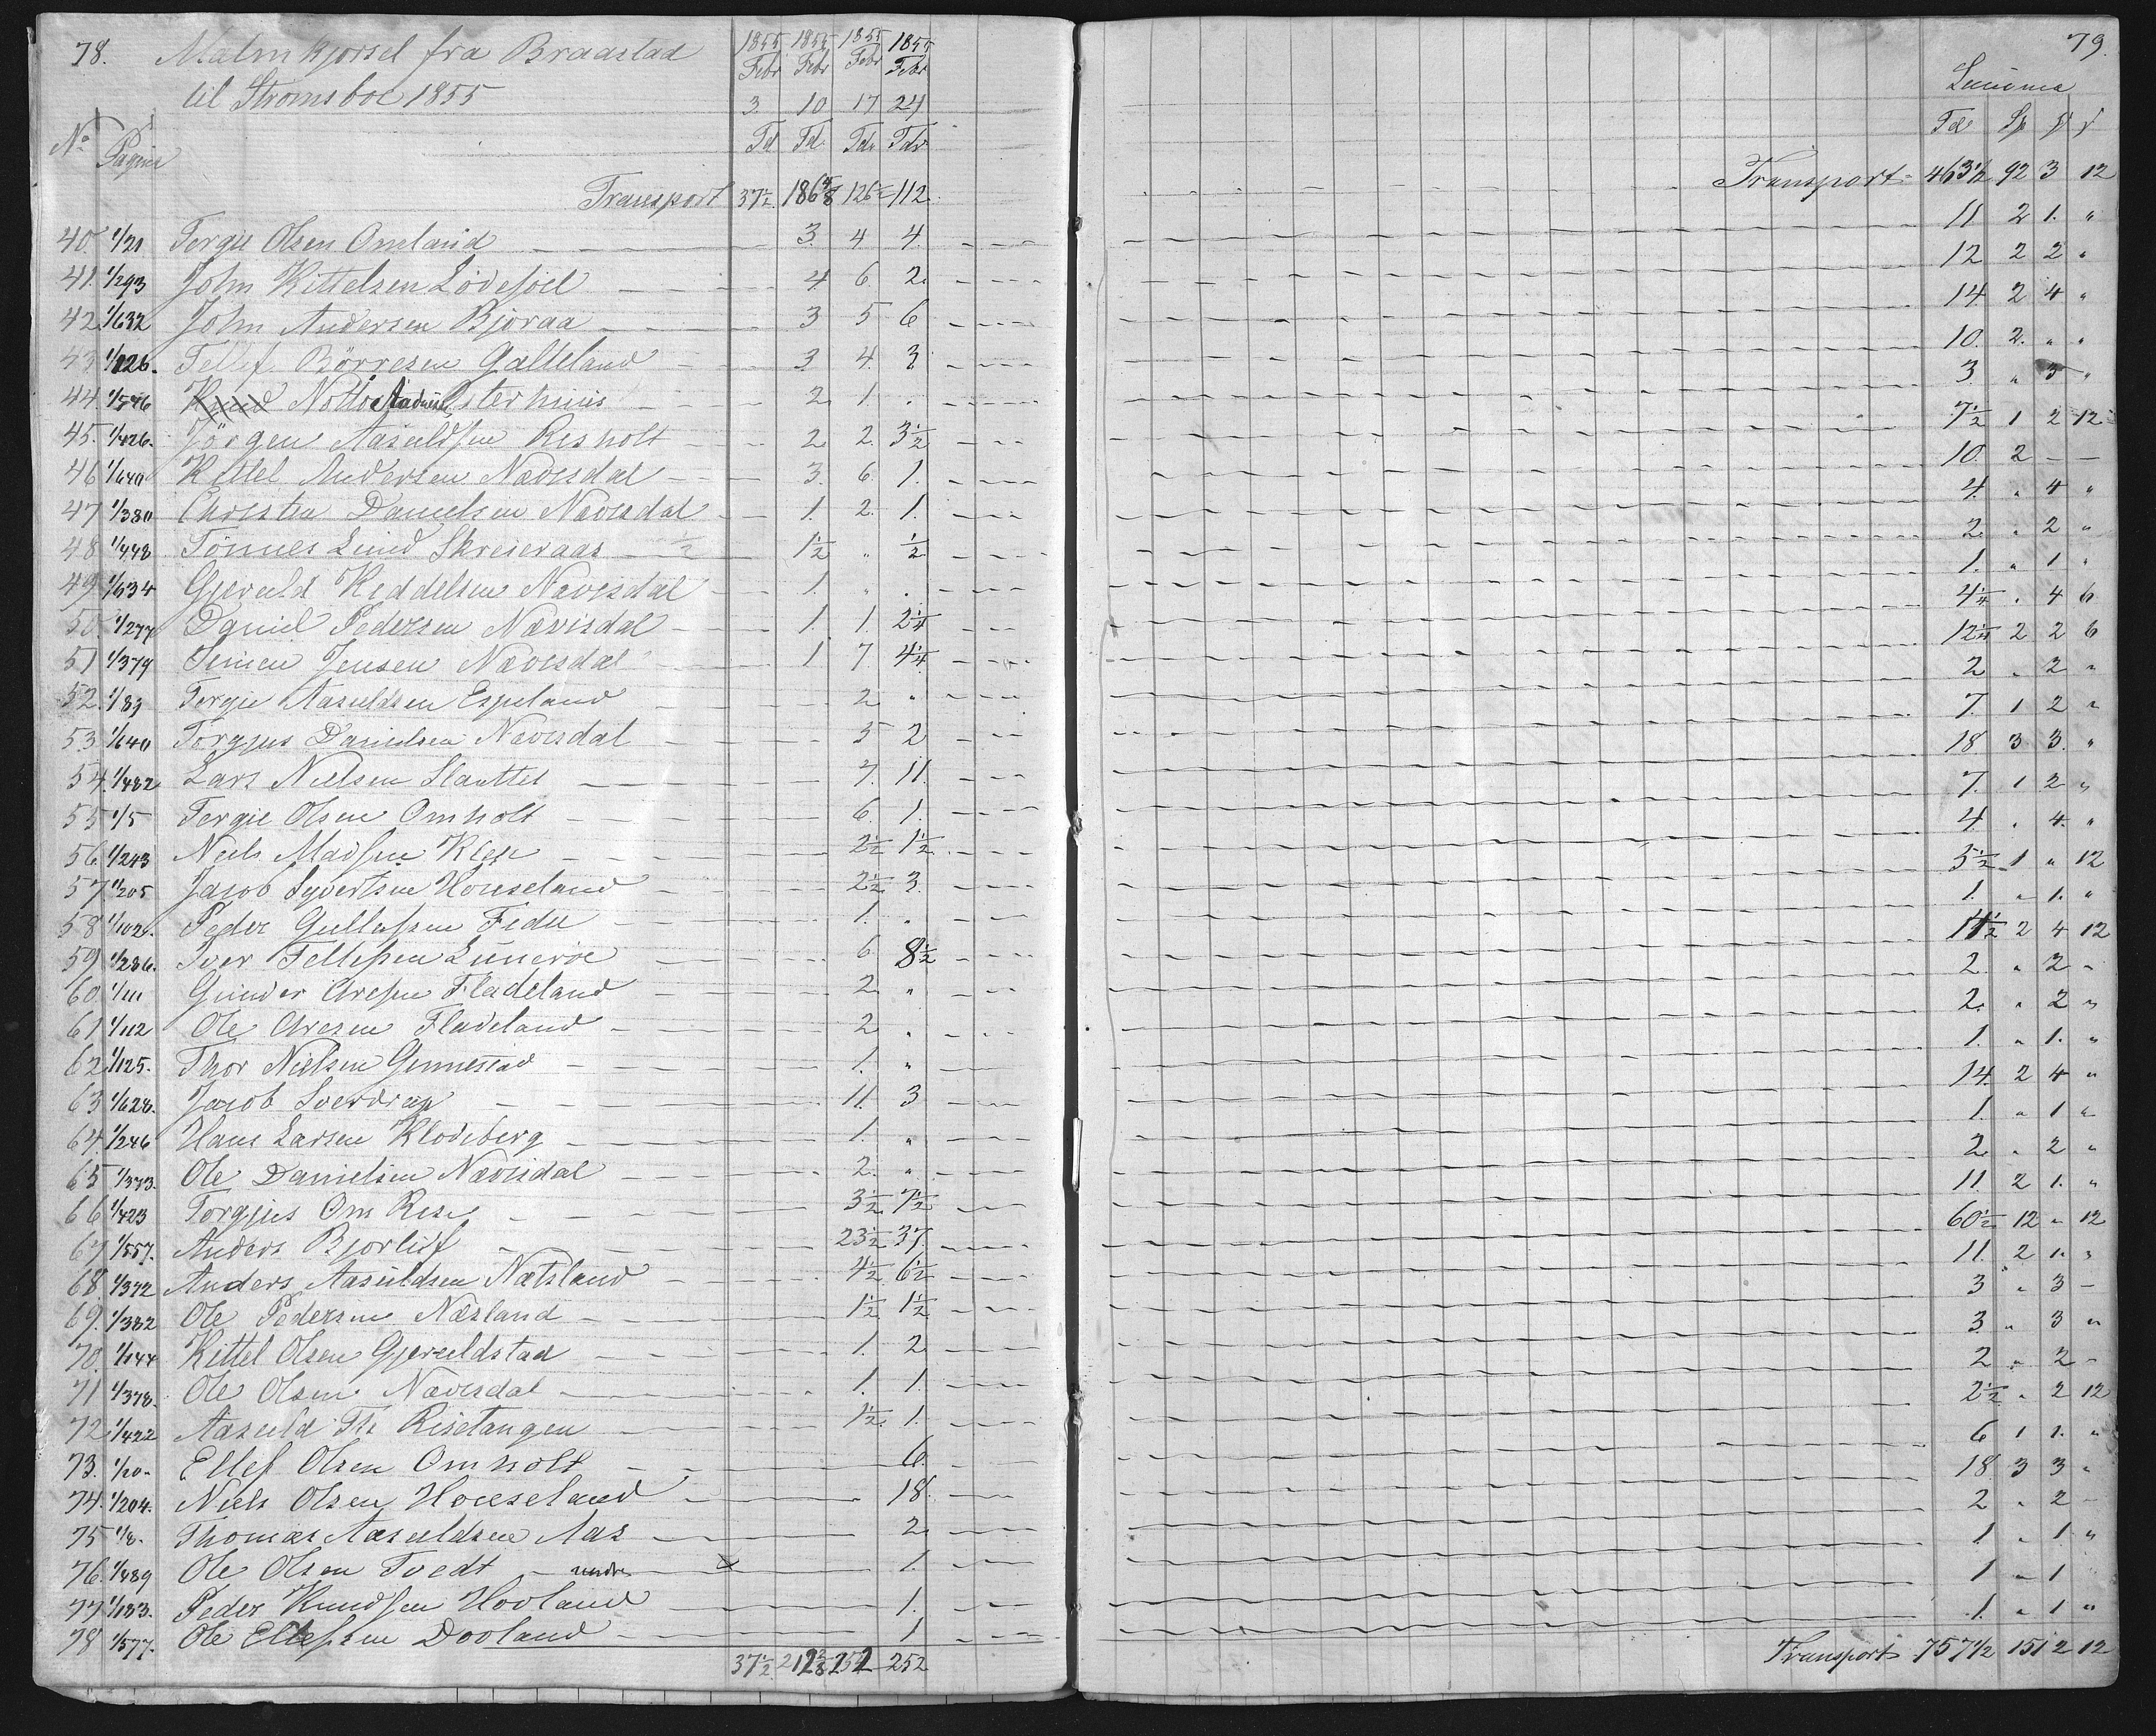 78. Malmkjorsel fra Braastad
til Stromsboe 1855
1855 1855 1855 1855
Febr Febr Febr Febr
3 10 17 24
No Pagina Td Td. Tdr Tdr.
Transport 37½ 186⅝ 126½ 112.
40 1/21 Tergie Olsen Omland 3. 4 4.
41. 1/293 John Kittelsen Lövesöel 4. 6. 2.
42. 1/632 John Andersen Bjoraa 3 5 6
43 1/126. Tellef Börresen Galteland 3 4. 3
44. 1/576 Notto Sterhuus 2. 1. .
45. 1/426. Jörgen Aasuldsen Risholt 2. 2. 3½
46 1/640 Kittel Andersen Nævesdal 3. 6. 1.
47 1/380 Christen Danielsen Nævesdal 1. 2. 1.
48 1/448 Tönnes Lund Skreieraas ½ 1½ „ ½
49. 1/634 Gjeruld Keddelsen Nævesdal 1. „ .
50. 1/277 Daniel Pedersen Nævisdal 1. 1. 2¼
51 1/379 Simen Jensen Nævesdal 1 7. 4¼
52. 1/83 Tergie Aasuldsen Espeland 2 „
53. 1/640 Torgjus Danielsen Nævesdal 5 2
54. 1/482 Lars Nielsen Slaattet 7. 11.
55 1/5 Tergie Olsen Omholt 6. 1.
56. 1/243 Niels Madsen Klep 2½ 1½
57 1/205 Jacob Syvertsen Houseland 2½ 3.
58 1/102. Peder Gullufsen Fedie 1. „
59 1/286. Iver Tellefsen Luneröe 6. 8½
60. 1/111 Gunder Aresen Fladeland 2. „
61 1/112 Ole Aresen Fladeland 2 „
62. 1/125. Thor Nielsen Ginnestad 1. „
63 1/628. Jacob Sverdrup 11. 3
64. 1/246 Hans Larsen Klodeberg 1. „
65 1/373. Ole Danielsen Nævesdal 2. „
66 1/423 Torgjus Om Rise 3½ 7½
67. 1/557. Anders Bjorluf 23½ 37.
68. 1/372 Anders Aasuldsen Nætsland 4½ 6½
69. 1/382 Ole Pedersen Næsland 1½ 1½
70. 1/144 Kittel Olsen Gjeruldstad 1. 2.
71 1/378. Ole Olsen Nævesdal 1. 1.
72 1/422 Aasuld Th Risetangen 1½ 1.
73. 1/20. Ellef Olsen Omholt 6.
74. 1/204. Niels Olsen Houseland 18.
75 1/8. Thomas Aasuldsen Aas 2.
76. 1/489 Ole Olsen Tvedt nedre 1.
77 1/183. Peder Knudsen Hovland 1.
78 1/577. Ole Ellefsen Dooland 1
37½ 212⅜ 252 252
79.
Summa
Td Sp
Transport 463½ 92 3 12
11 2 1. „
12 2 2 „
14 2 4 „
10. 2. „ „
3. „ 3 „
7½ 1 2 12
10. 2 — —
4. „ 4 „
2. „ 2 „
1. „ 1 „
4¼ „ 4 6
12¼ 2 2 6
2 „ 2 „
7. 1 2 „
18 3 3. „
7. 1 2 „
4. „ 4. „
5½ 1 „ 12
1. „ 1. „
14½ 2 4 12
2. „ 2 „
2. „ 2 „
1. „ 1. „
14. 2 4 „
1. „ 1 „
2. „ 2 „
11. 2 1. „
60½ 12 „ 12
11. 2 1. „
3 „ 3 —
3. „ 3 „
2 „ 2 „
2½ „ 2 12
6 1 1. „
18. 3 3 „
2 „ 2 —
1 „ 1 „
1 „ 1
1. „ 1 „
Transport 757½ 151 2 12